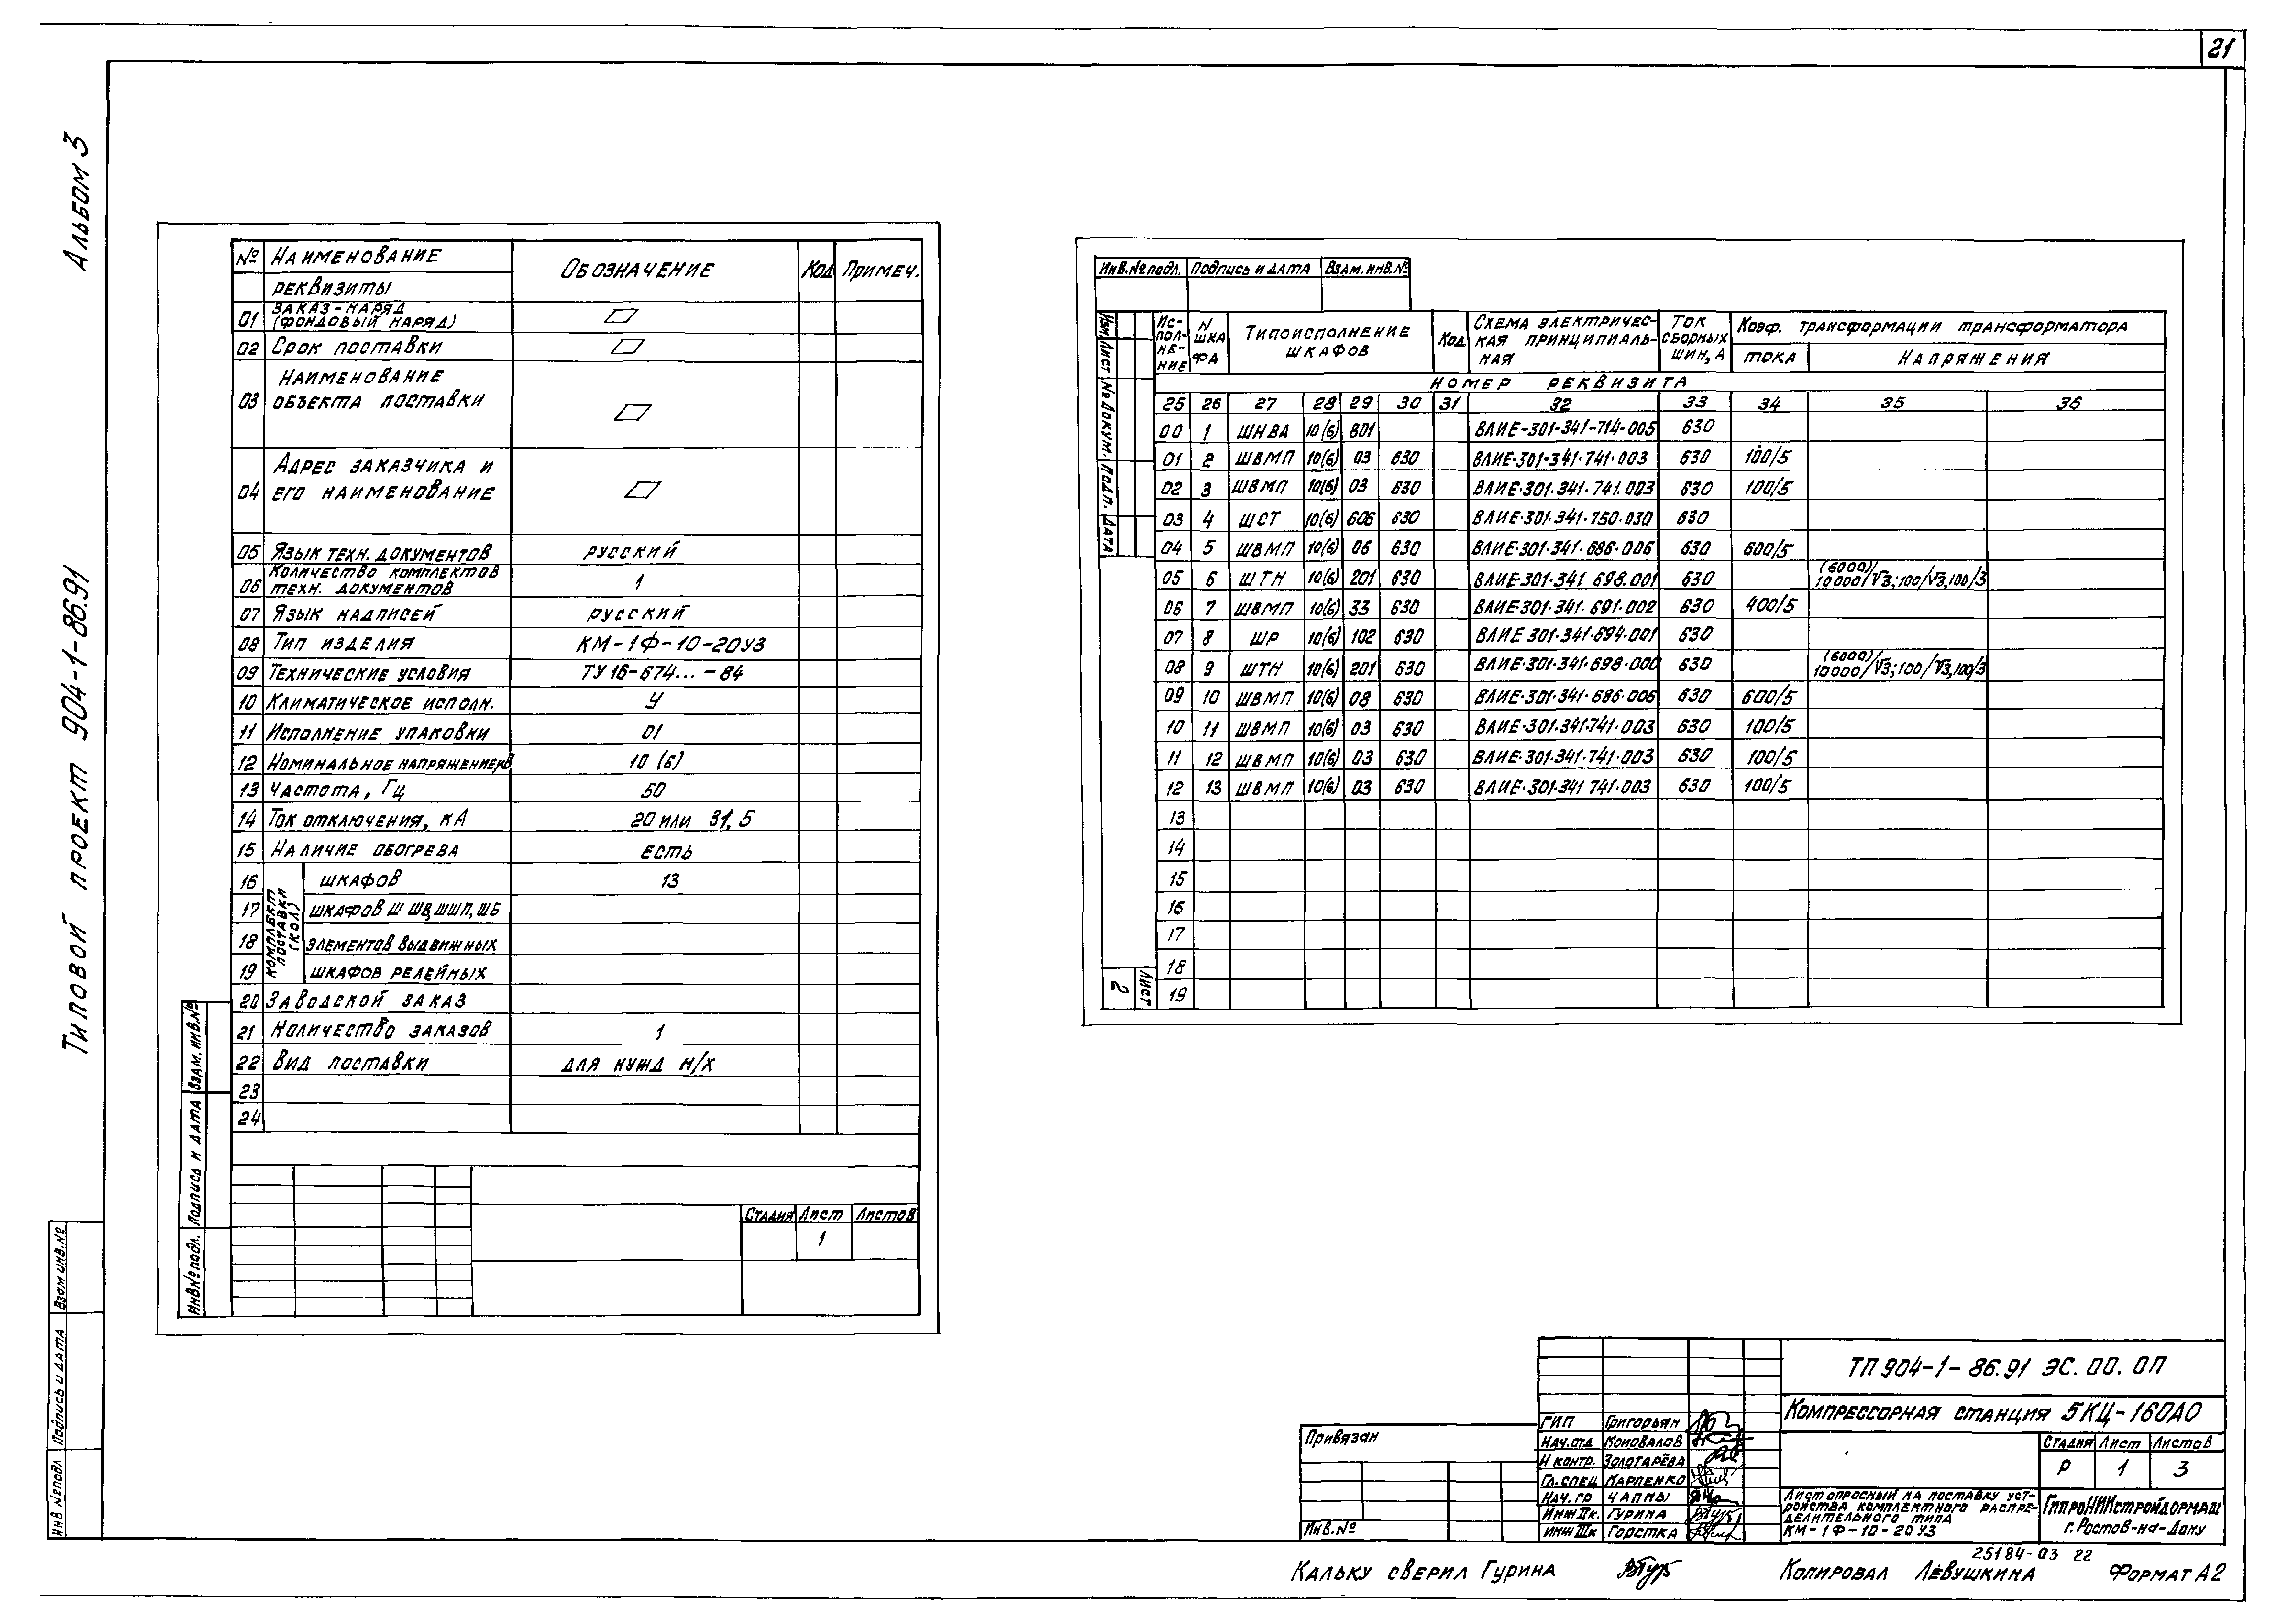 21
Альбом 3
Типовой проект 904-1-86.91
№ Наименование реквизиты Обозначение Код Примеч.
01 Заказ-наряд (фондовый наряд)
02 Срок поставки
03 Наименование объекта поставки
04 Адрес заказчика и его наименование
05 Язык техн. документов русский
06 Количество комплектов техн. документов 1
07 Язык надписей русский
08 Тип изделия КМ-1Ф-10-20У3
09 Технические условия ТУ 16-674...-84
10 Климатическое исполн. У
11 Исполнение упаковки 01
12 Номинальное напряжение, кВ 10 (6)
13 Частота, Гц 50
14 Ток отключения, кА 20 или 31,5
15 Наличие обогрева есть
Комплект поставки (кол)
16 шкафов 13
17 шкафов Ш ШВ, ШШП, ШБ
18 элементов выдвижных
19 шкафов релейных
20 Заводской заказ
21 Количество заказов 1
22 Вид поставки для нужд н/х
23
24
Стадия Лист Листов
1
Инв.№ подл. Подпись и дата Взам. инв.№
Инв.№ подл. Подпись и дата Взам. инв.№
Изм. Лист № докум. Подп. Дата
Исполнение N шкафа Типоисполнение шкафов Код Схема электрическая принципиальная Ток сборных шин, А Коэф. трансформации трансформатора
тока Напряжения
Номер реквизита
25 26 27 28 29 30 31 32 33 34 35 36
00 1 ШНВА 10(6) 801 ВЛИЕ-301-341-714-005 630
01 2 ШВМП 10(6) 03 630 ВЛИЕ·301·341·741·003 630 100/5
02 3 ШВМП 10(6) 03 630 ВЛИЕ·301·341·741.003 630 100/5
03 4 ШСТ 10(6) 606 630 ВЛИЕ·301·341·750·030 630
04 5 ШВМП 10(6) 06 630 ВЛИЕ·301·341·686·006 630 600/5
05 6 ШТН 10(6) 201 630 ВЛИЕ·301·341 698.001 630 (6000) 10000/√3;100/√3,100/3
06 7 ШВМП 10(6) 33 630 ВЛИЕ·301·341·691·002 630 400/5
07 8 ШР 10(6) 102 630 ВЛИЕ 301·341·694·001 630
08 9 ШТН 10(6) 201 630 ВЛИЕ·301·341·698·000 630 (6000) 10000/√3;100/√3,100/3
09 10 ШВМП 10(6) 08 630 ВЛИЕ·301·341·686·006 630 600/5
10 11 ШВМП 10(6) 03 630 ВЛИЕ·301·341·741·003 630 100/5
11 12 ШВМП 10(6) 03 630 ВЛИЕ·301·341·741·003 630 100/5
12 13 ШВМП 10(6) 03 630 ВЛИЕ·301·341 741·003 630 100/5
13
14
15
16
17
18
19
Лист 2
Инв №подл Подпись и дата Взам инв.№
Привязан
Инв.№
ГИП Григорьян
Нач.отд Коновалов
Н контр. Золотарёва
Гл.спец Карпенко
Нач.гр Чапны
Инж IIк. Гурина
Инж IIIк Горстка
ТП 904-1-86.91 ЭС.00.ОЛ
Компрессорная станция 5КЦ-160АО
Стадия Лист Листов
Р 1 3
Лист опросный на поставку уст-
ройства комплектного распре-
делительного типа
КМ-1Ф-10-20У3
ГипроНИИстройдормаш
г.Ростов-на-Дону
25184-03 22
Кальку сверил Гурина
Копировал Лёвушкина
Формат А2